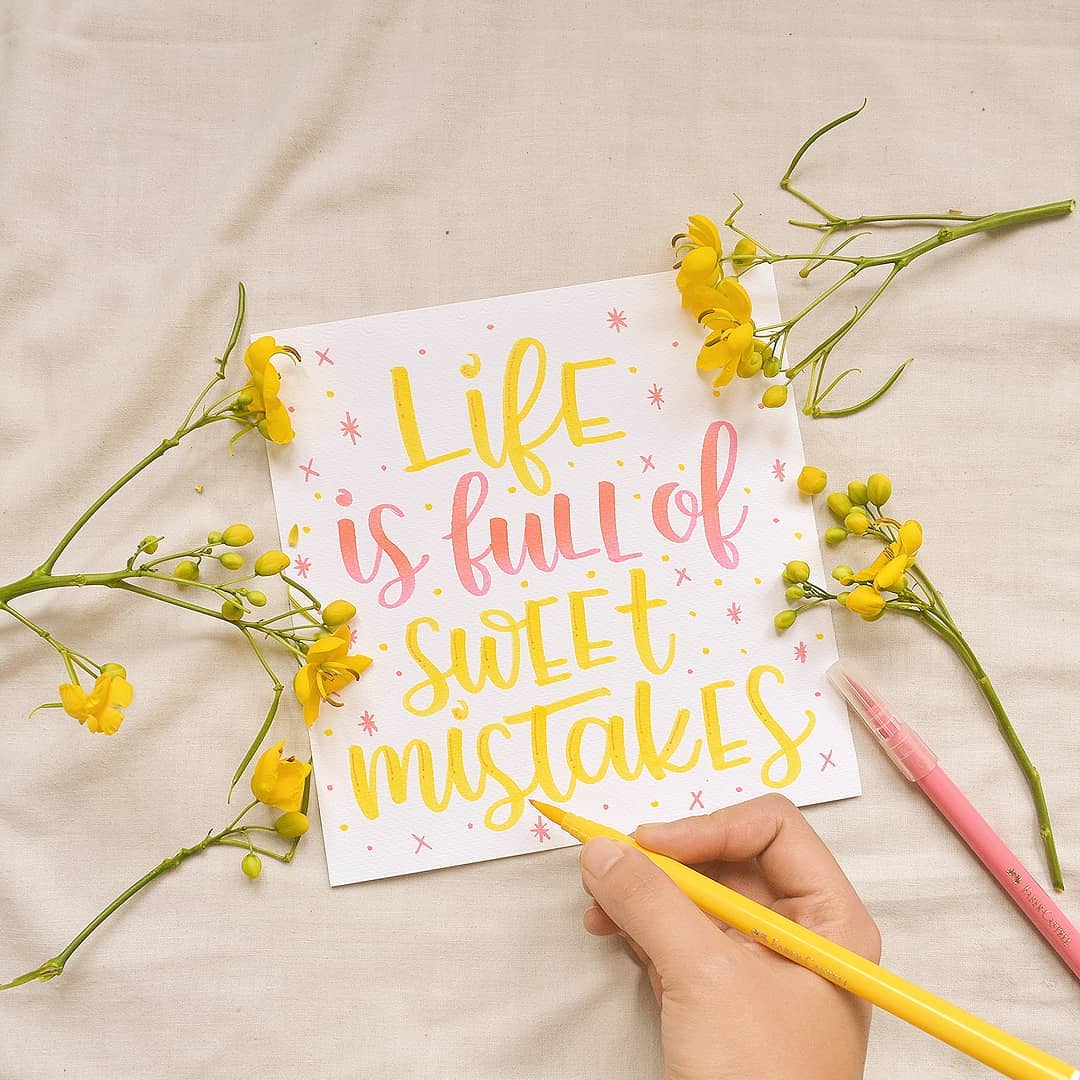 Life
is full of
sweet
mistakes
FABER-CASTELL
FABER-CASTELL